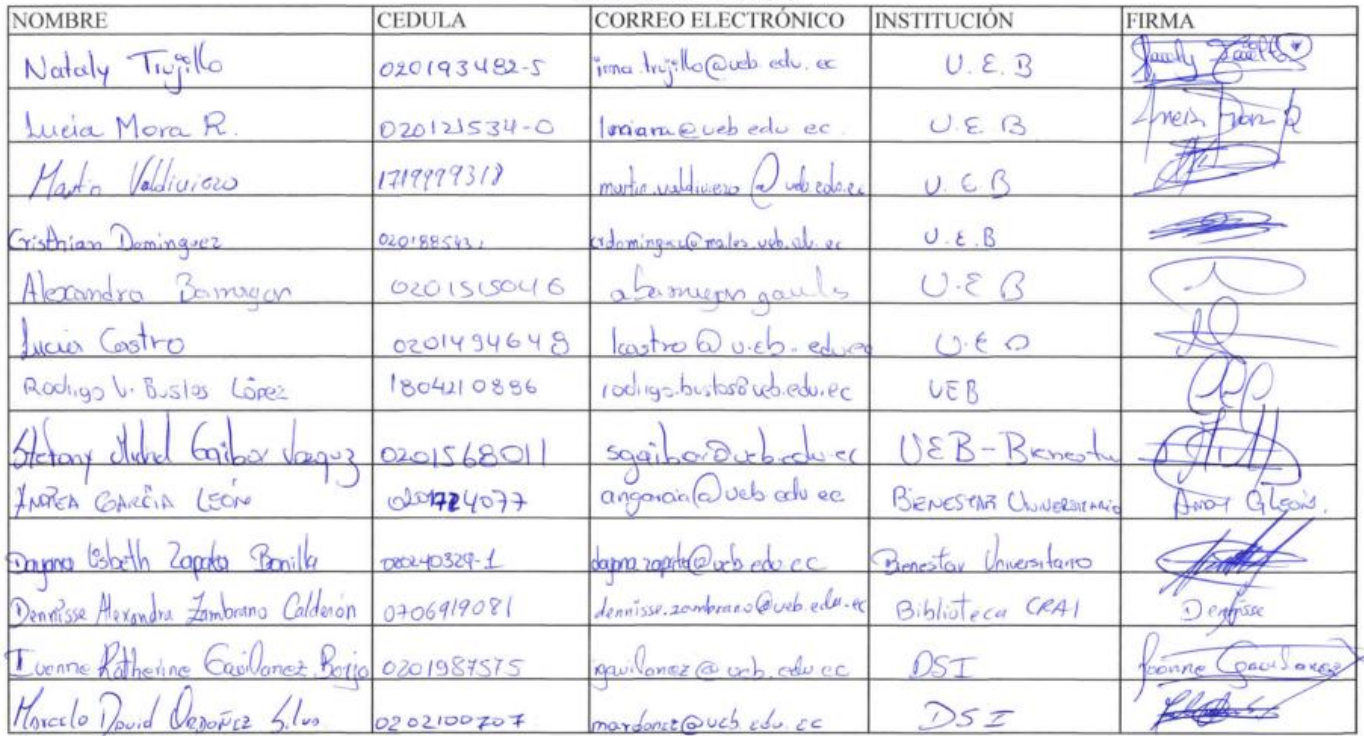 NOMBRE CEDULA CORREO ELECTRÓNICO INSTITUCIÓN FIRMA
Nataly Trujillo 020193482-5 irma.trujillo@ueb.edu.ec U.E.B
Lucia Mora R. 020121534-0 @ueb.edu.ec U.E.B
Martin Valdiviezo 1719999318 martin.valdiviezo@ueb.edu.ec U.E.B
Cristhian Dominguez U.E.B
Alexandra 0201515046 U.E.B
Lucia Castro 0201494648 lcastro@ueb.edu.ec
Rodrigo V. Bustos López 1804210896 rodrigo.bustos@ueb.edu.ec UEB
Stefany Gaibor 0201568011 sgaibor@ueb.edu.ec UEB-
ANDREA GARCÍA LEÓN angarcia@ueb.edu.ec BIENESTAR UNIVERSITARIO
Dayana Lisbeth Zapata Bonilla 020240329-1 dayana.zapata@ueb.edu.ec Bienestar Universitario
Dennisse Alexandra Zambrano Calderón 0706919081 dennisse.zambrano@ueb.edu.ec Biblioteca CRAI Dennisse
Ivonne Katherine Gavilanez Borja 0201987575 @ueb.edu.ec DSI Ivonne Gavilanez
Marcelo David Ordoñez Silva 0202100707 @ueb.edu.ec DSI